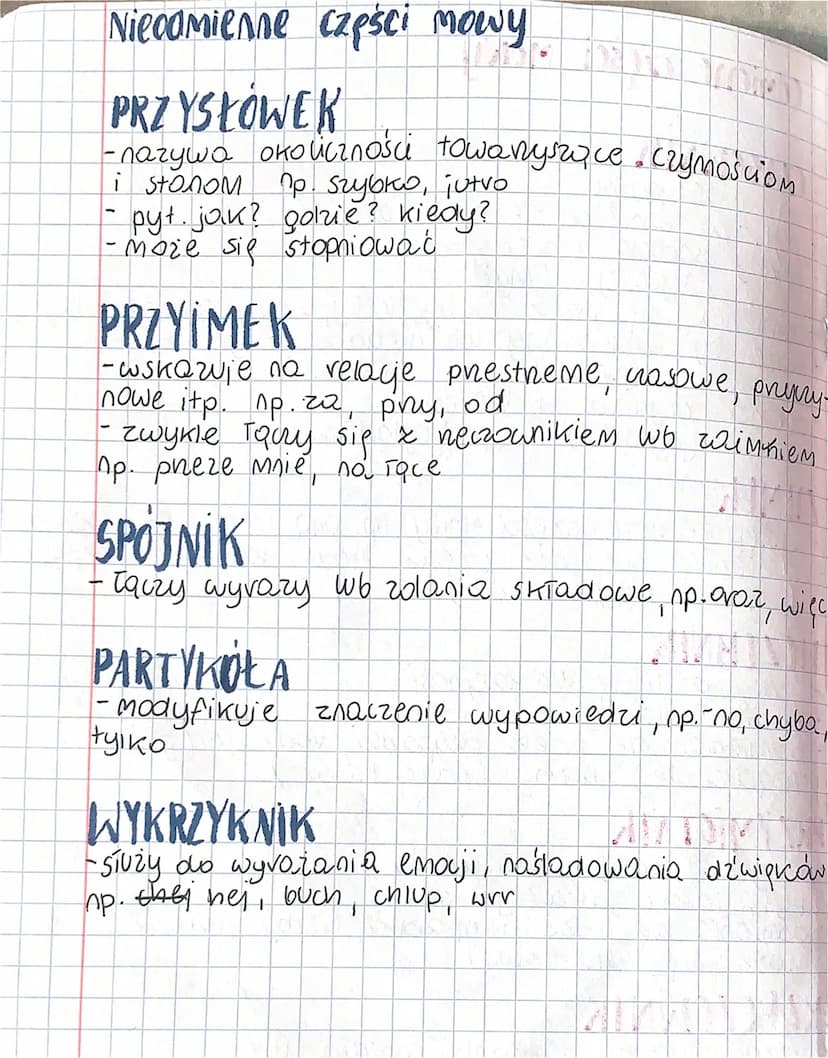 Nieodmienne części mowy
PRZYSŁÓWEK
-nazywa okoliczności towarzyszące czynnościom
i stanom np. szybko, jutro
- pyt. jak? gdzie? kiedy?
- może się stopniować
PRZYIMEK
-wskazuje na relacje przestrzenne, czasowe, przyczy-
nowe itp. np. za, przy, od
- zwykle łączy się z rzeczownikiem wb zaimkiem
np. przeze mnie, na łące
SPÓJNIK
- łączy wyrazy wb zdania składowe, np. oraz, więc
PARTYKÓŁA
-modyfikuje znaczenie wypowiedzi, np.-no, chyba,
tylko
WYKRZYKNIK
-służy do wyrażania emocji, naśladowania dźwięków
np. hej, buch, chlup, wrr